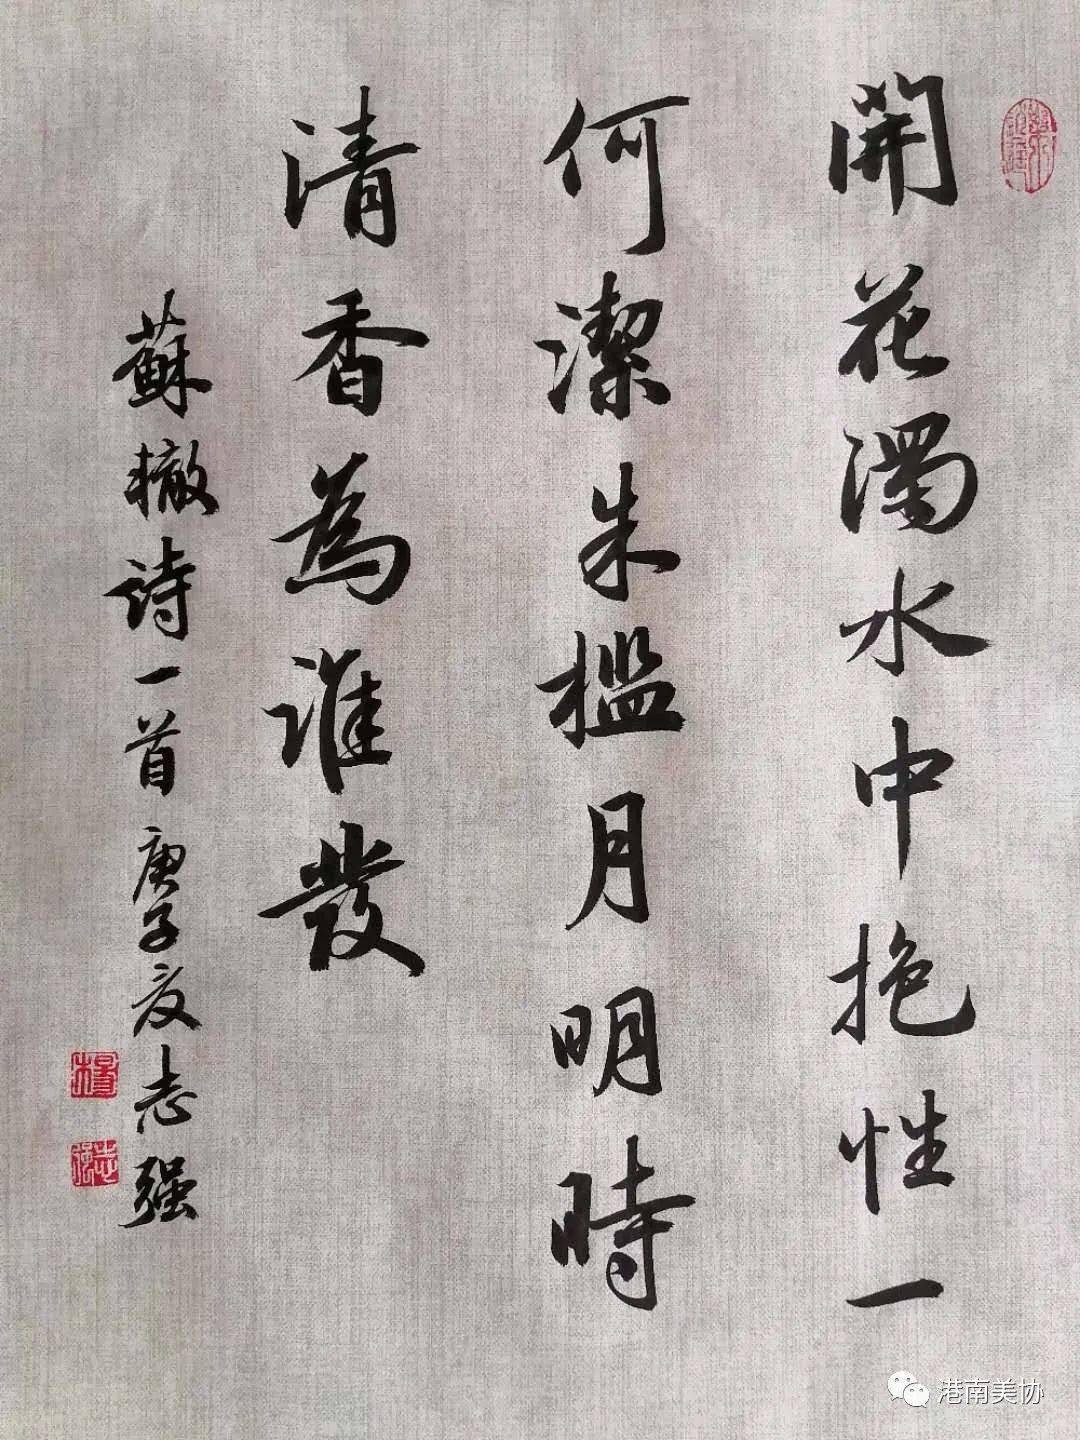 開花濁水中抱性一
何潔朱檻月明時
清香為誰發
蘇轍詩一首庚子夏志强
楊
志强
港南美协